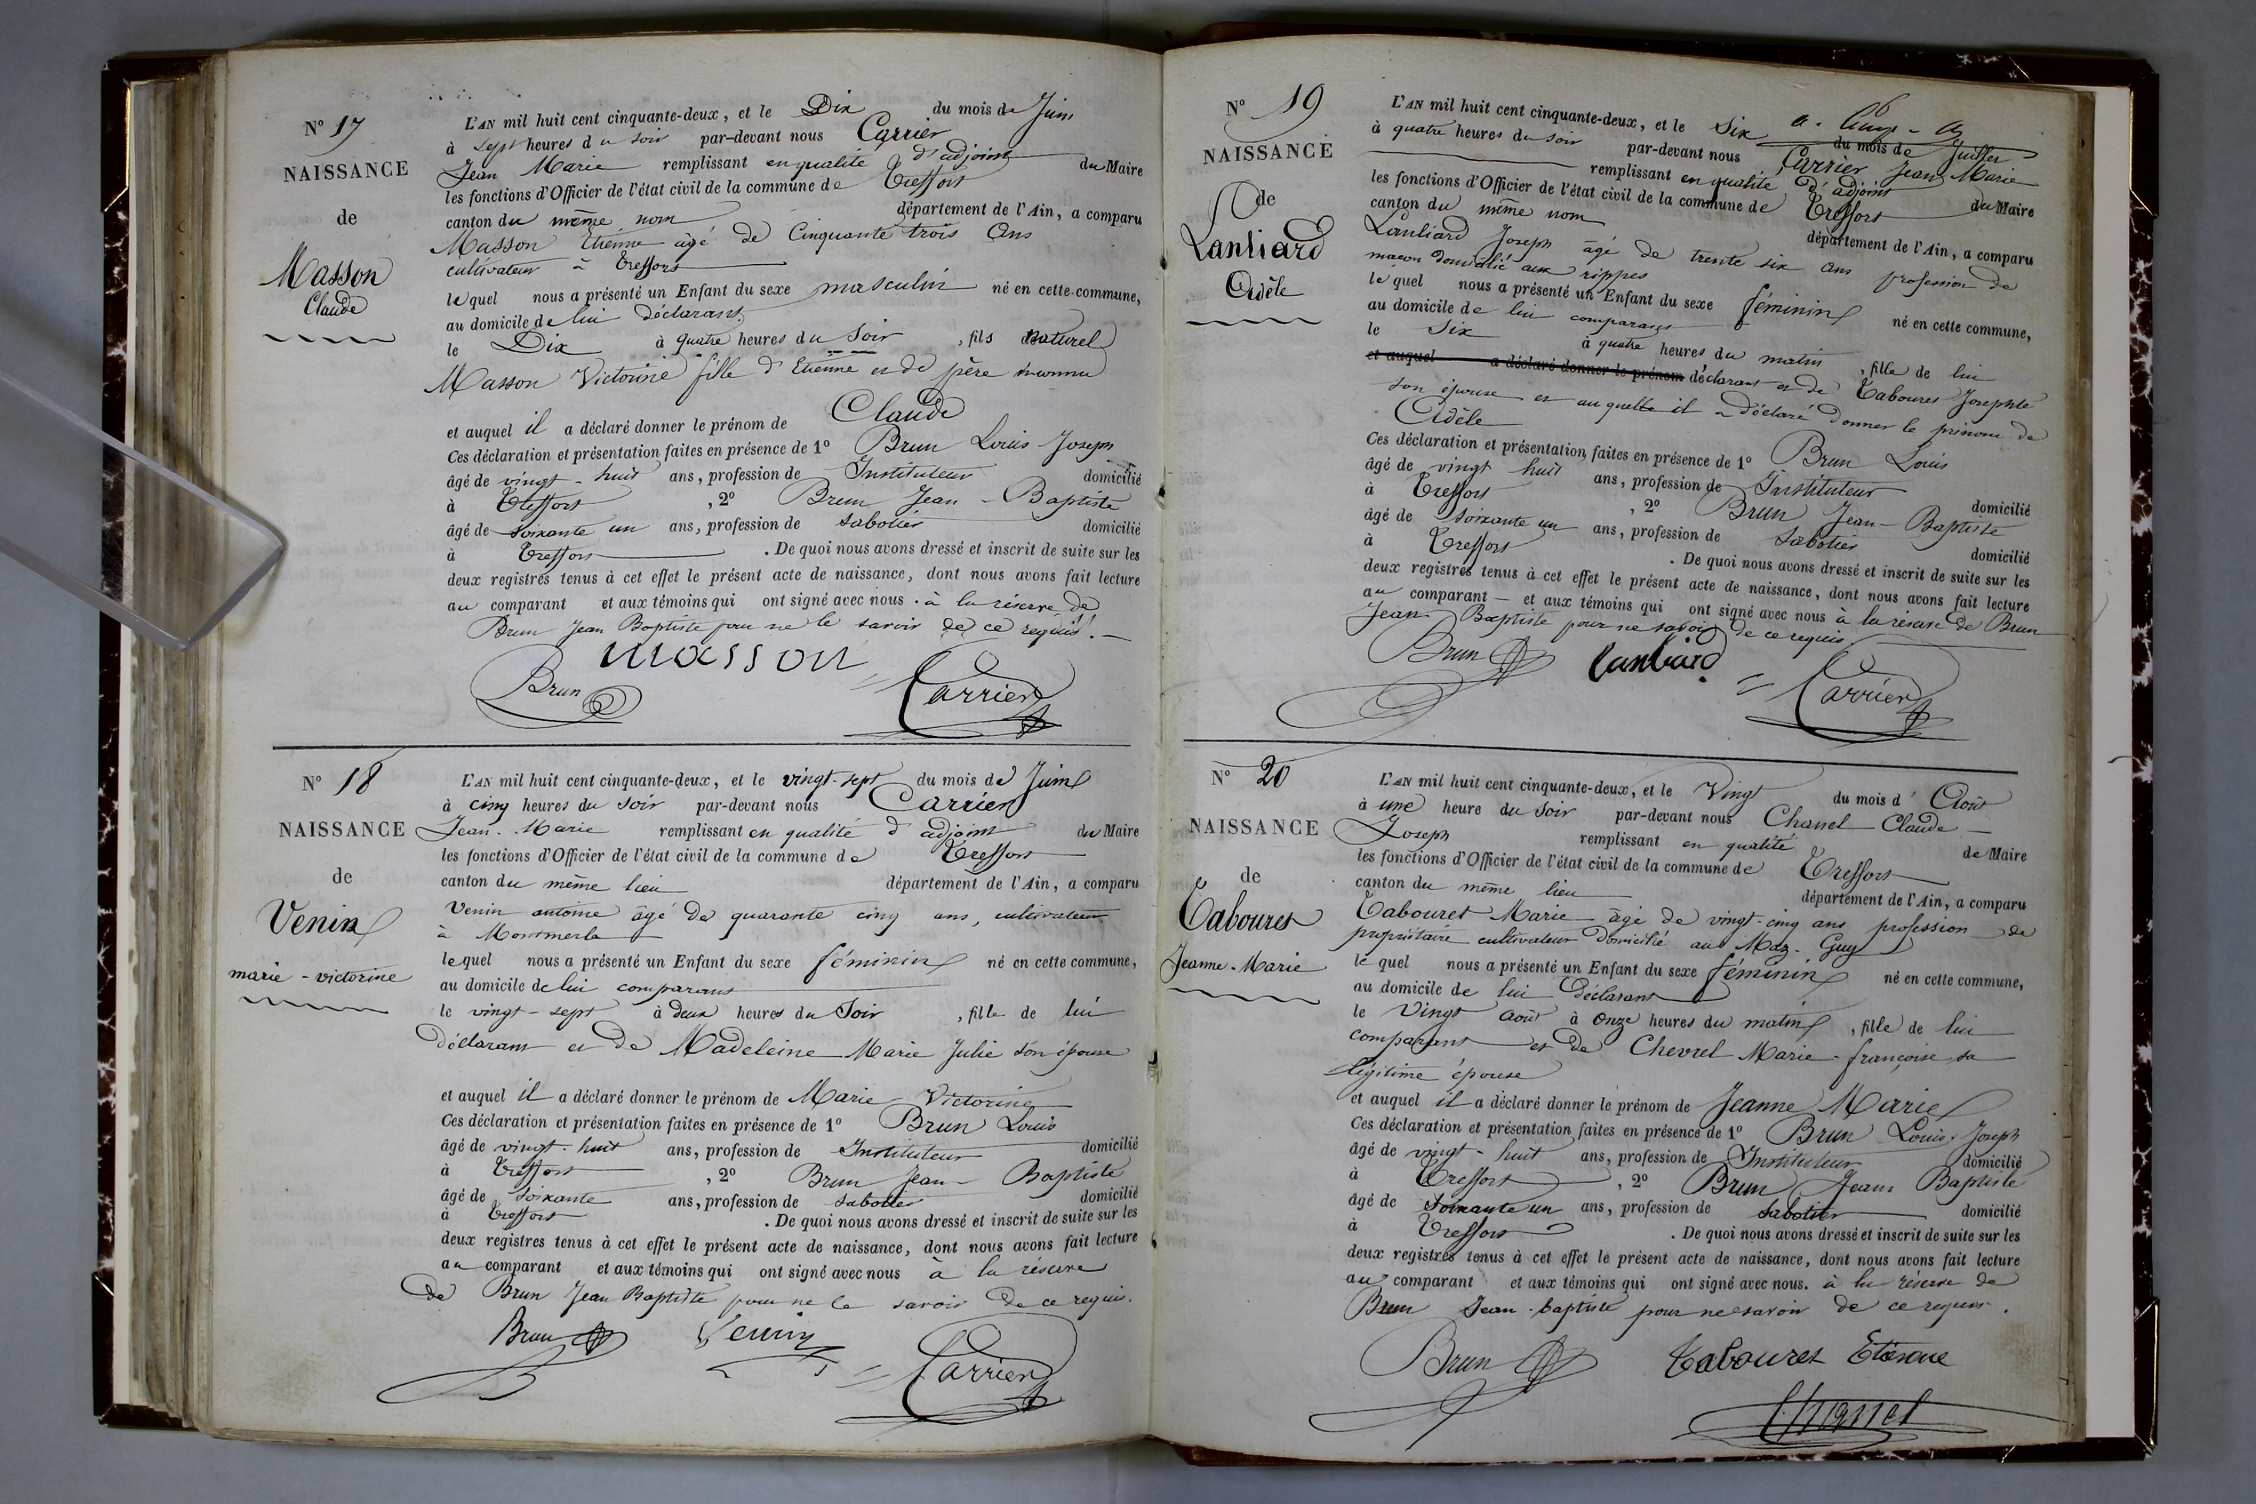 N° 17
NAISSANCE
de
Masson
Claude
L'AN mil huit cent cinquante-deux, et le Dix du mois de Juin
à sept heures du soir par-devant nous Carrier
Jean Marie remplissant en qualité d'adjoint du Maire
les fonctions d'Officier de l'état civil de la commune de Treffort
canton du même nom département de l'Ain, a comparu
Masson Etienne âgé de Cinquante trois ans
cultivateur à Treffort
lequel nous a présenté un Enfant du sexe masculin né en cette commune,
au domicile de lui déclarant
le Dix à quatre heures du soir, fils naturel
Masson Victorine fille d'Etienne et de père inconnu
et auquel il a déclaré donner le prénom de Claude
Ces déclaration et présentation faites en présence de 1° Brun Louis Joseph
âgé de vingt-huit ans, profession de Instituteur domicilié
à Treffort, 2° Brun Jean-Baptiste
âgé de soixante un ans, profession de sabotier domicilié
à Treffort. De quoi nous avons dressé et inscrit de suite sur les
deux registres tenus à cet effet le présent acte de naissance, dont nous avons fait lecture
au comparant et aux témoins qui ont signé avec nous. à la réserve de
Brun Jean Baptiste pour ne le savoir de ce requis.
masson
Brun Carrier
N° 18
NAISSANCE
de
Venin
marie-victorine
L'AN mil huit cent cinquante-deux, et le vingt-sept du mois de Juin
à cinq heures du soir par-devant nous Carrier
Jean-Marie remplissant en qualité d'adjoint du Maire
les fonctions d'Officier de l'état civil de la commune de Treffort
canton du même lieu département de l'Ain, a comparu
Venin antoine âgé de quarante cinq ans, cultivateur
à Montmerle
lequel nous a présenté un Enfant du sexe féminin né en cette commune,
au domicile de lui comparant
le vingt-sept à deux heures du soir, fille de lui
déclarant et de Madeleine Marie Julie son épouse
et auquel il a déclaré donner le prénom de Marie Victorine
Ces déclaration et présentation faites en présence de 1° Brun Louis
âgé de vingt-huit ans, profession de Instituteur domicilié
à Treffort, 2° Brun Jean-Baptiste
âgé de soixante ans, profession de sabotier domicilié
à Treffort. De quoi nous avons dressé et inscrit de suite sur les
deux registres tenus à cet effet le présent acte de naissance, dont nous avons fait lecture
au comparant et aux témoins qui ont signé avec nous à la réserve
de Brun Jean Baptiste pour ne le savoir de ce requis.
Brun Venin Carrier
N° 19
NAISSANCE
de
Lanliard
Adèle
L'AN mil huit cent cinquante-deux, et le Six du mois de Juillet
à quatre heures du soir par-devant nous Carrier Jean Marie
remplissant en qualité d'adjoint du Maire
les fonctions d'Officier de l'état civil de la commune de Treffort
canton du même nom département de l'Ain, a comparu
Lanliard Joseph âgé de trente six ans profession de
maçon domicilié aux rippes
lequel nous a présenté un Enfant du sexe féminin né en cette commune,
au domicile de lui comparant
le Six à quatre heures du matin, fille de lui
et auquel a déclaré donner le prénom déclarant et de Tabouret Josephte
son épouse et auquelle il a déclaré donner le prénom de
Adèle
Ces déclaration et présentation faites en présence de 1° Brun Louis
âgé de vingt huit ans, profession de Instituteur domicilié
à Treffort, 2° Brun Jean-Baptiste
âgé de soixante un ans, profession de sabotier domicilié
à Treffort. De quoi nous avons dressé et inscrit de suite sur les
deux registres tenus à cet effet le présent acte de naissance, dont nous avons fait lecture
au comparant et aux témoins qui ont signé avec nous à la réserve de Brun
Jean Baptiste pour ne savoir de ce requis
Brun Lanliard Carrier
N° 20
NAISSANCE
de
Tabouret
Jeanne-Marie
L'AN mil huit cent cinquante-deux, et le Vingt du mois d'Août
à une heure du soir par-devant nous Chanel Claude
Joseph remplissant en qualité de Maire
les fonctions d'Officier de l'état civil de la commune de Treffort
canton du même lieu département de l'Ain, a comparu
Tabouret Marie âgé de vingt-cinq ans profession de
propriétaire cultivateur domicilié au Maz-Guy
lequel nous a présenté un Enfant du sexe féminin né en cette commune,
au domicile de lui déclarant
le Vingt août à onze heures du matin, fille de lui
comparant et de Chevrel Marie-françoise sa
légitime épouse
et auquel il a déclaré donner le prénom de Jeanne Marie
Ces déclaration et présentation faites en présence de 1° Brun Louis Joseph
âgé de vingt-huit ans, profession de Instituteur domicilié
à Treffort, 2° Brun Jean Baptiste
âgé de soixante un ans, profession de sabotier domicilié
à Treffort. De quoi nous avons dressé et inscrit de suite sur les
deux registres tenus à cet effet le présent acte de naissance, dont nous avons fait lecture
au comparant et aux témoins qui ont signé avec nous. à la réserve de
Brun Jean-baptiste pour ne savoir de ce requis.
Brun Tabouret Etienne
Chanel